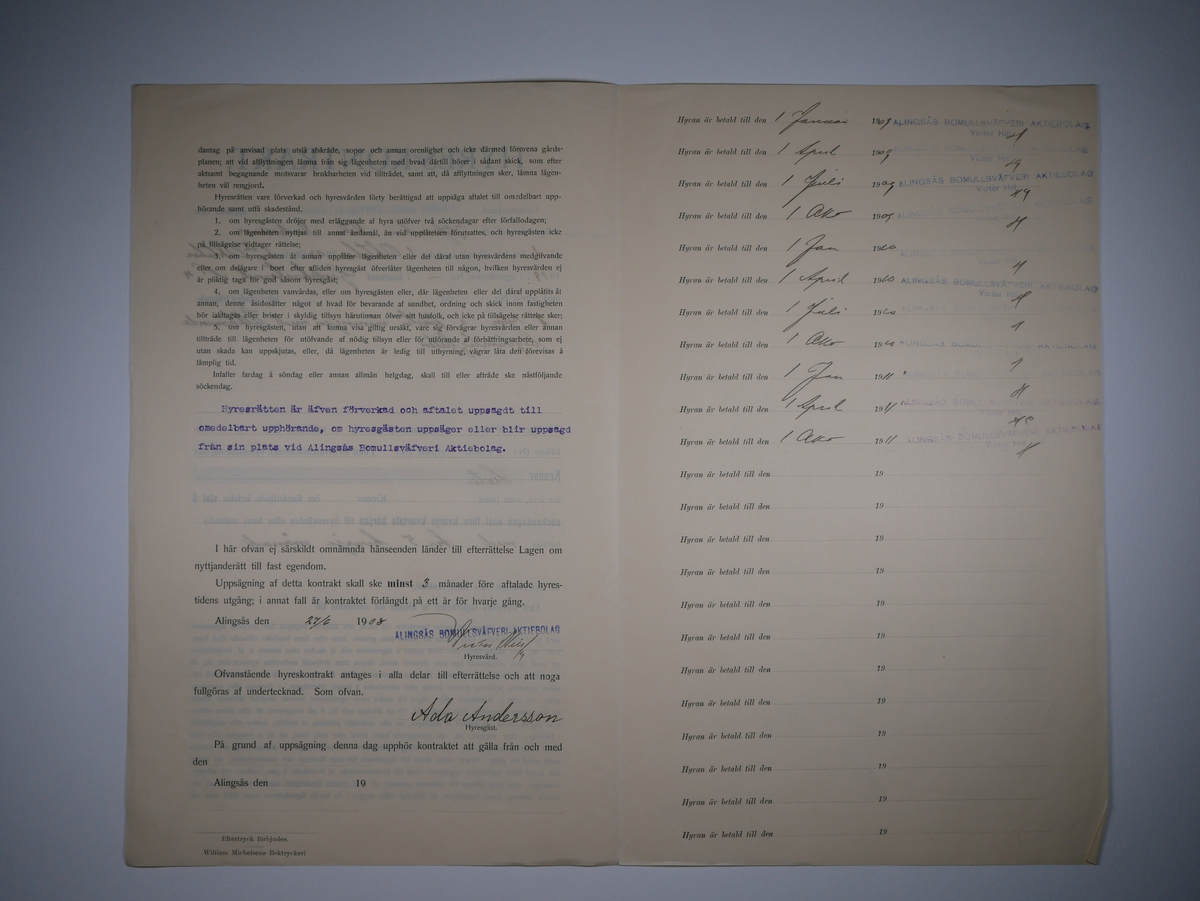 dantag på anvisad plats utslå afskräde, sopor och annan orenlighet och icke därmed förorena gårds-
planen; att vid afflyttningen lämna från sig lägenheten med hvad därtill hörer i sådant skick, som efter
aktsamt begagnande motsvarar brukbarheten vid tillträdet, samt att, då afflyttningen sker, lämna lägen-
heten väl rengjord.
Hyresrätten vare förverkad och hyresvärden förty berättigad att uppsäga aftalet till omedelbart upp-
hörande samt utfå skadestånd.
1. om hyresgästen dröjer med erläggande af hyra utöfver två söckendagar efter förfallodagen;
2. om lägenheten nyttjas till annat ändamål, än vid upplåtelsen förutsattes, och hyresgästen icke
på tillsägelse vidtager rättelse;
3. om hyresgästen åt annan upplåter lägenheten eller del däraf utan hyresvärdens medgifvande
eller om delägare i boet efter afliden hyresgäst öfverlåter lägenheten till någon, hvilken hyresvärden ej
är pliktig taga för god såsom hyresgäst;
4. om lägenheten vanvårdas, eller om hyresgästen eller, där lägenheten eller del däraf upplåtits åt
annan, denne åsidosätter något af hvad för bevarande af sundhet, ordning och skick inom fastigheten
bör iakttagas eller brister i skyldig tillsyn härutinnan öfver sitt husfolk, och icke på tillsägelse rättelse sker;
5. om hyresgästen, utan att kunna visa giltig ursäkt, vare sig förvägrar hyresvärden eller annan
tillträde till lägenheten för utöfvande af nödig tillsyn eller för utförande af förbättringsarbete, som ej
utan skada kan uppskjutas, eller, då lägenheten är ledig till uthyrning, vägrar låta den förevisas å
lämplig tid.
Infaller fardag å söndag eller annan allmän helgdag, skall till eller afträde ske nästföljande
söckendag.
Hyresrätten är äfven förverkad och aftalet uppsagdt till
omedelbart upphörande, om hyresgästen uppsäger eller blir uppsagd
från sin plats vid Alingsås Bomullsväfveri Aktiebolag.
I här ofvan ej särskildt omnämnda hänseenden länder till efterrättelse Lagen om
nyttjanderätt till fast egendom.
Uppsägning af detta kontrakt skall ske minst 3 månader före aftalade hyres-
tidens utgång; i annat fall är kontraktet förlängdt på ett år för hvarje gång.
Alingsås den 27/6 1908
ALINGSÅS BOMULLSVÄFVERI AKTIEBOLAG
Hyresvärd.
Ofvanstående hyreskontrakt antages i alla delar till efterrättelse och att noga
fullgöras af undertecknad. Som ofvan.
Ada Andersson
Hyresgäst.
På grund af uppsägning denna dag upphör kontraktet att gälla från och med
den
Alingsås den 19
Eftertryck förbjudes.
William Michelsens Boktryckeri
Hyran är betald till den 1 Januari 1909 ALINGSÅS BOMULLSVÄFVERI AKTIEBOLAG
Hyran är betald till den 1 April 1909
Hyran är betald till den 1 Juli 1909 ALINGSÅS BOMULLSVÄFVERI AKTIEBOLAG
Hyran är betald till den 1 Okto 1909
Hyran är betald till den 1 Jan 1910
Hyran är betald till den 1 April 1910 ALINGSÅS BOMULLSVÄFVERI AKTIEBOLAG
Hyran är betald till den 1 Juli 1910
Hyran är betald till den 1 Okto 1910
Hyran är betald till den 1 Jan 1911
Hyran är betald till den 1 April 1911
Hyran är betald till den 1 Okto 1911 ALINGSÅS BOMULLSVÄFVERI AKTIEBOLAG
Hyran är betald till den 19
Hyran är betald till den 19
Hyran är betald till den 19
Hyran är betald till den 19
Hyran är betald till den 19
Hyran är betald till den 19
Hyran är betald till den 19
Hyran är betald till den 19
Hyran är betald till den 19
Hyran är betald till den 19
Hyran är betald till den 19
Hyran är betald till den 19